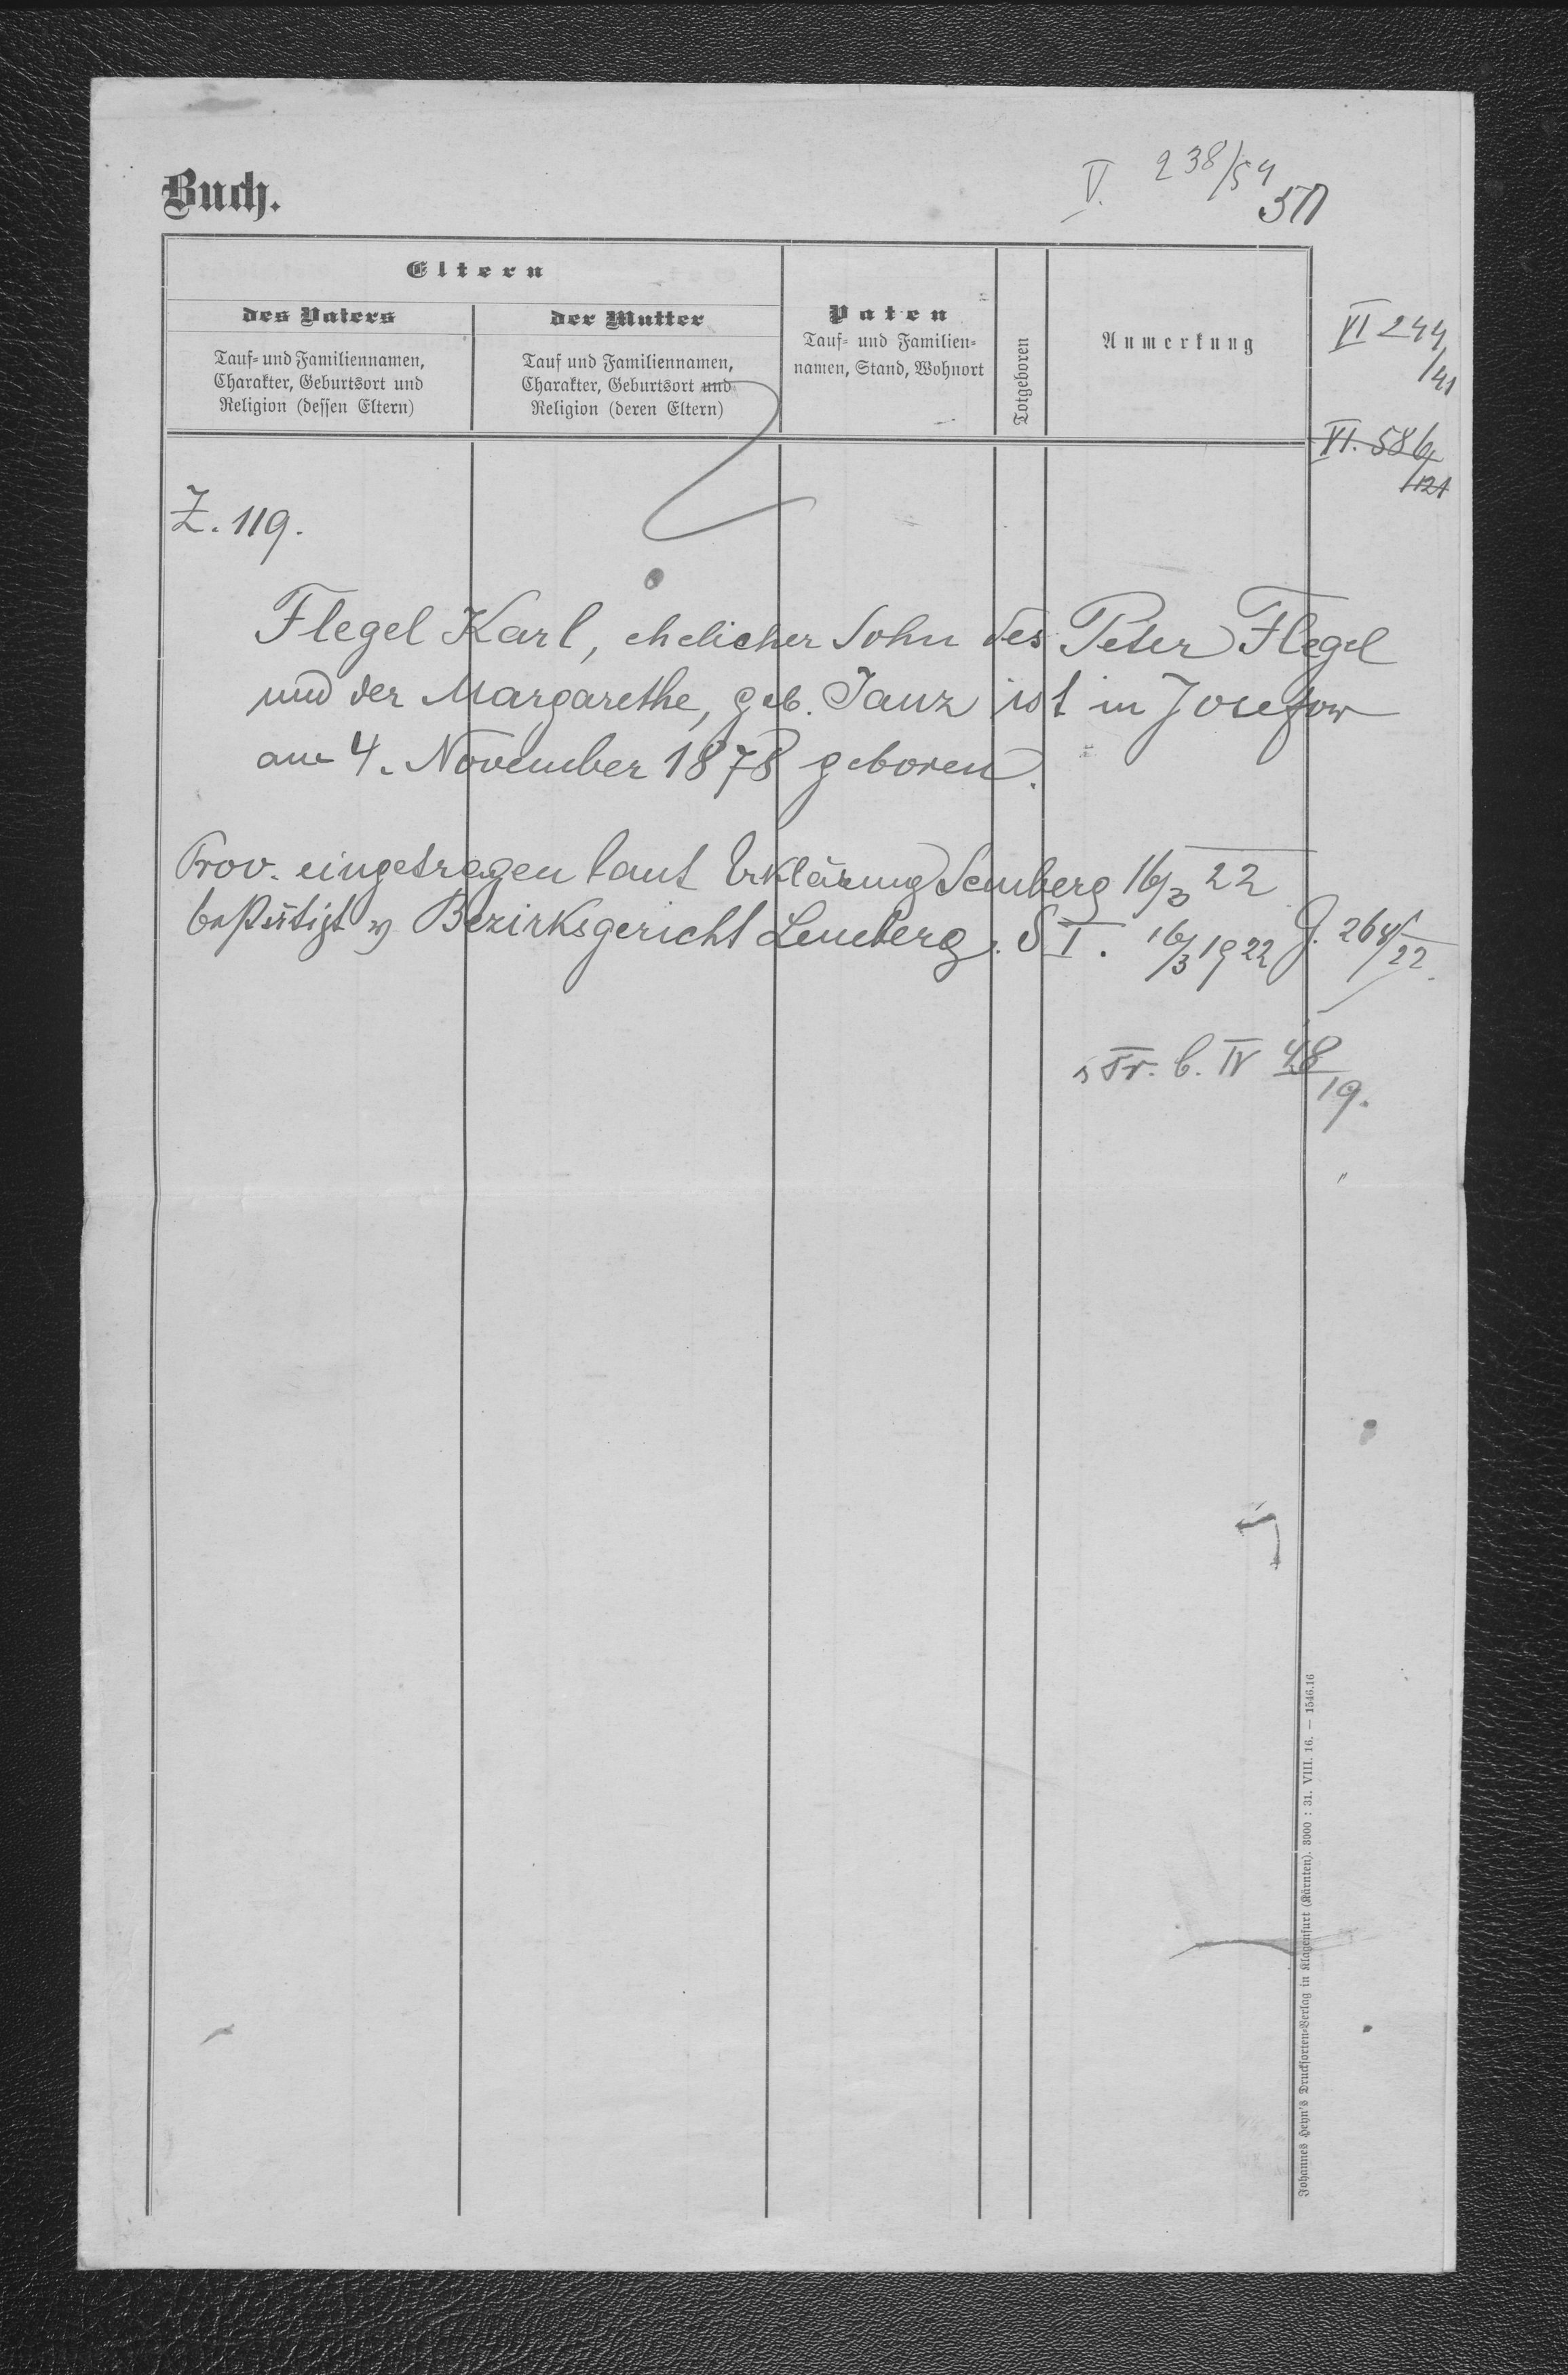 Buch.
V. 238/54
511
Eltern
des Vaters
der Mutter
Tauf- und Familiennamen,
Charakter, Geburtsort und
Religion (dessen Eltern)
Tauf und Familiennamen,
Charakter, Geburtsort und
Religion (deren Eltern)
Paten
Tauf- und Familien-
namen, Stand, Wohnort
Totgeboren
Anmerkung
VI 244
/41
VI. 586
/121
Z. 119.
Flegel Karl, ehelicher Sohn des Peter Flegel
und der Margarethe, geb. Janz ist in Josefow
am 4. November 1878 geboren.
Prov. eingetragen laut Erklärung Lemberg 16/3 22
bestätigt v Bezirksgericht Lemberg. S I. 16/3 1922 J. 264/22.
Tr. b. IV 48
19.
Johannes Heyn's Drucksorten-Verlag in Klagenfurt (Kärnten). 3000 : 31. VIII. 16. — 1546.16